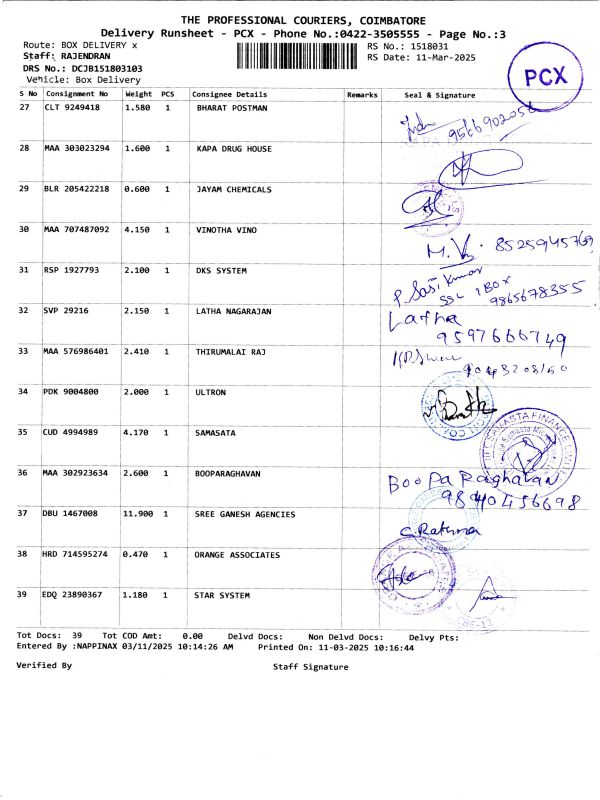 THE PROFESSIONAL COURIERS, COIMBATORE
Delivery Runsheet - PCX - Phone No.:0422-3505555 - Page No.:3
Route: BOX DELIVERY x
RS No.: 1518031
Staff: RAJENDRAN
RS Date: 11-Mar-2025
DRS No.: DCJB151803103
Vehicle: Box Delivery
PCX
S No Consignment No Weight PCS Consignee Details Remarks Seal & Signature
27 CLT 9249418 1.580 1 BHARAT POSTMAN
28 MAA 303023294 1.600 1 KAPA DRUG HOUSE
29 BLR 205422218 0.600 1 JAYAM CHEMICALS
30 MAA 707487092 4.150 1 VINOTHA VINO
8525945769
31 RSP 1927793 2.100 1 DKS SYSTEM
P. Sasi Kumar
9865678355
32 SVP 29216 2.150 1 LATHA NAGARAJAN
Latha
9597666749
33 MAA 576986401 2.410 1 THIRUMALAI RAJ
34 PDK 9004800 2.000 1 ULTRON
35 CUD 4994989 4.170 1 SAMASATA
36 MAA 302923634 2.600 1 BOOPARAGHAVAN
BooPa Raghavan
9840456698
37 DBU 1467008 11.900 1 SREE GANESH AGENCIES
C. Rathna
38 HRD 714595274 0.470 1 ORANGE ASSOCIATES
39 EDQ 23890367 1.180 1 STAR SYSTEM
Tot Docs: 39 Tot COD Amt: 0.00 Delvd Docs: Non Delvd Docs: Delvy Pts:
Entered By :NAPPINAX 03/11/2025 10:14:26 AM Printed On: 11-03-2025 10:16:44
Verified By Staff Signature